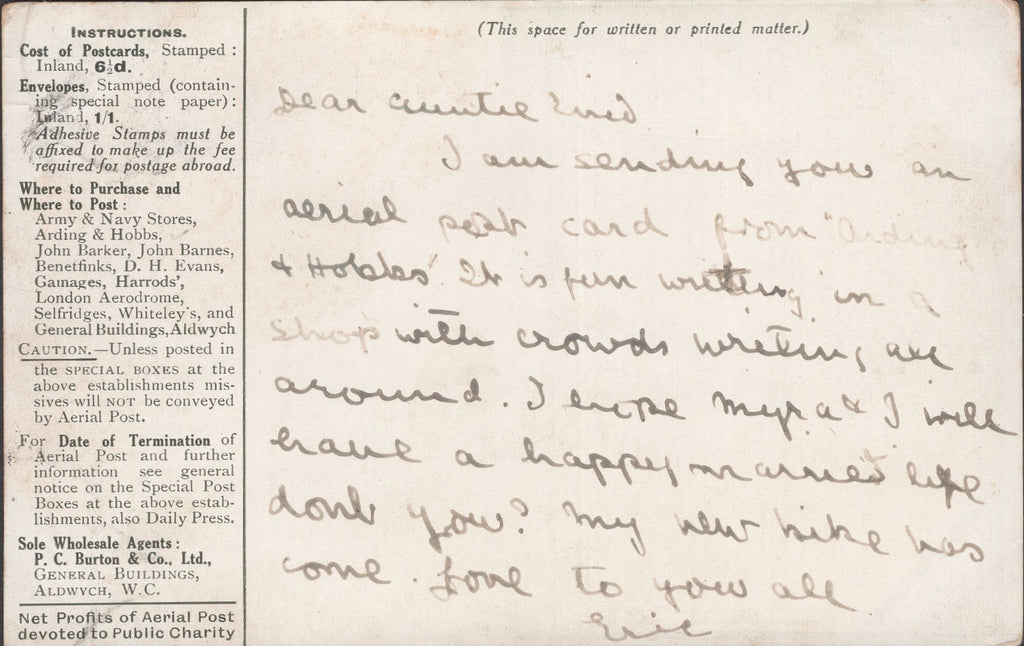 INSTRUCTIONS.
Cost of Postcards, Stamped :
Inland, 6½d.
Envelopes, Stamped (contain-
ing special note paper) :
Inland, 1/1.
Adhesive Stamps must be
affixed to make up the fee
required for postage abroad.
Where to Purchase and
Where to Post :
Army & Navy Stores,
Arding & Hobbs,
John Barker, John Barnes,
Benetfinks, D. H. Evans,
Gamages, Harrods',
London Aerodrome,
Selfridges, Whiteley's, and
General Buildings, Aldwych
CAUTION.—Unless posted in
the SPECIAL BOXES at the
above establishments mis-
sives will NOT be conveyed
by Aerial Post.
For Date of Termination of
Aerial Post and further
information see general
notice on the Special Post
Boxes at the above estab-
lishments, also Daily Press.
Sole Wholesale Agents :
P. C. Burton & Co., Ltd.,
GENERAL BUILDINGS,
ALDWYCH, W.C.
Net Profits of Aerial Post
devoted to Public Charity
(This space for written or printed matter.)
Dear Auntie Enid
I am sending you an
aerial post card from "Arding
& Hobbs". It is fun writing in a
shop with crowds writing all
around. I hope Myra & I will
have a happy married life
dont you? My new bike has
come. Love to you all
Eric